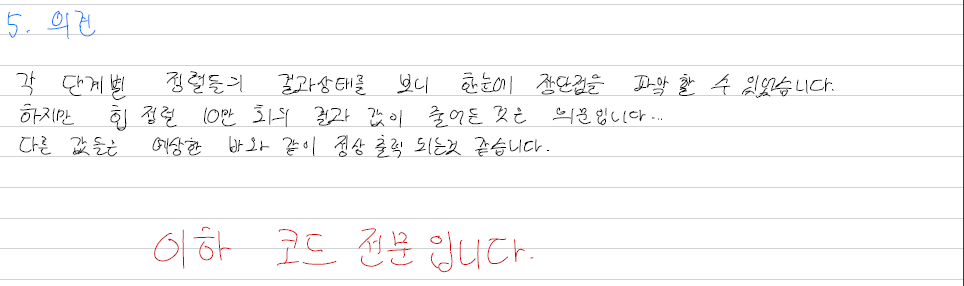 5. 의견
각 단계별 정렬들의 결과상태를 보니 한눈에 장단점을 파악 할 수 있었습니다.
하지만 힙 정렬 10만 회의 결과 값이 줄어든 것은 의문입니다...
다른 값들은 예상한 바와 같이 정상 출력 되는것 같습니다.
이하 코드 전문입니다.